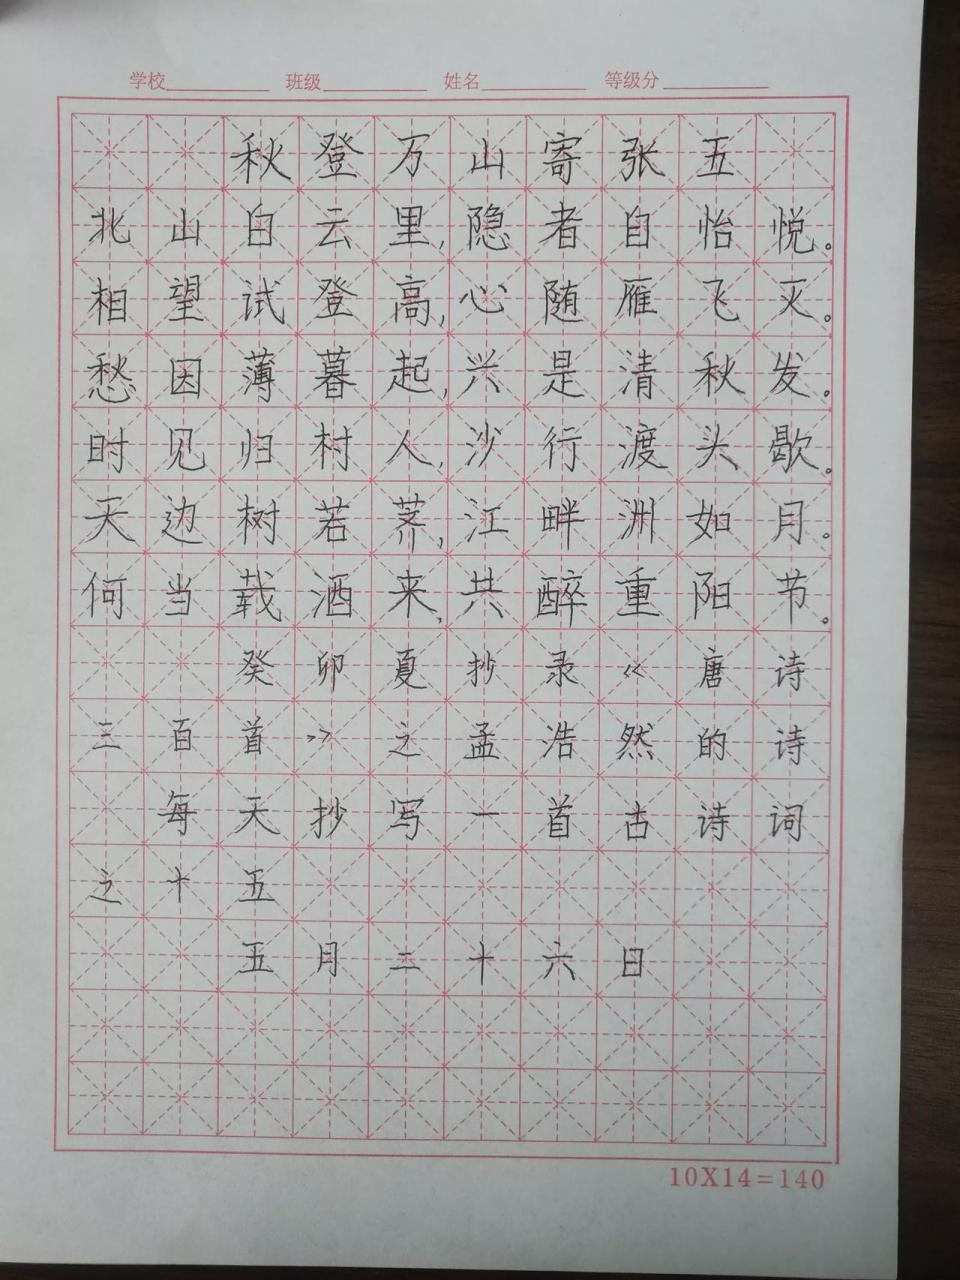 学校 班级 姓名 等级分
秋登万山寄张五
北山白云里,隐者自怡悦。
相望试登高,心随雁飞灭。
愁因薄暮起,兴是清秋发。
时见归村人,沙行渡头歇。
天边树若荠,江畔洲如月。
何当载酒来,共醉重阳节。
癸卯夏抄录《唐诗
三百首》之孟浩然的诗
每天抄写一首古诗词
之十五
五月二十六日
10X14=140